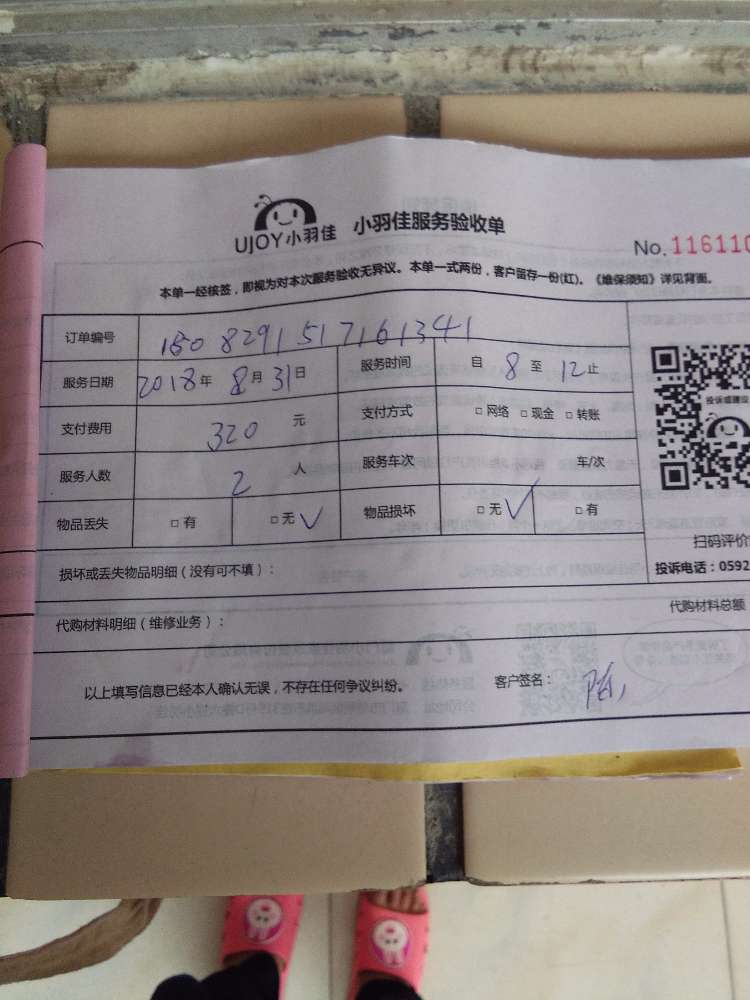 UJOY小羽佳 小羽佳服务验收单
No. 116110
本单一经核签，即视为对本次服务验收无异议。本单一式两份，客户留存一份(红)。《维保须知》详见背面。
订单编号 1808291517161341
服务日期 2018年 8月 31日 服务时间 自 8 至 12止
投诉或建议
支付费用 320 元 支付方式 □网络 □现金 □转账
服务人数 2 人 服务车次 车/次
物品丢失 □有 □无√ 物品损坏 □无√ □有
扫码评价
损坏或丢失物品明细（没有可不填）：
投诉电话：0592
代购材料明细（维修业务）： 代购材料总额
以上填写信息已经本人确认无误，不存在任何争议纠纷。 客户签名：